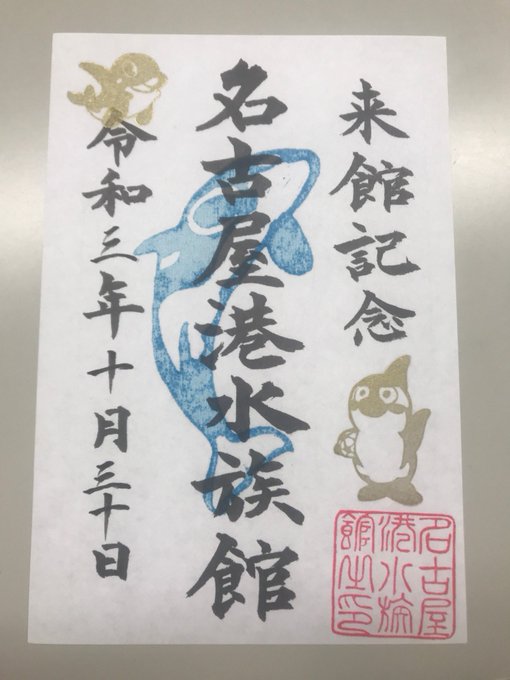 来館記念
名古屋港水族館
令和三年十月三十日
名古屋
港水族
館之印